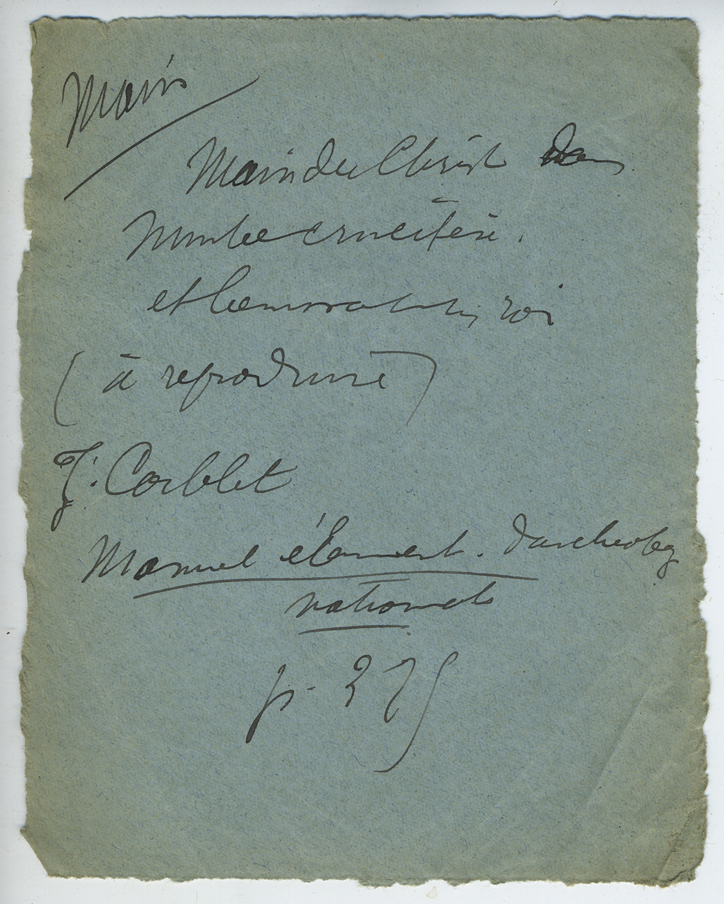 Main
Main du Christ dans
Nimbe crucifère.
et
(à reproduire)
J. Corblet
Manuel élément. d'archéolog
nationale
p. 275